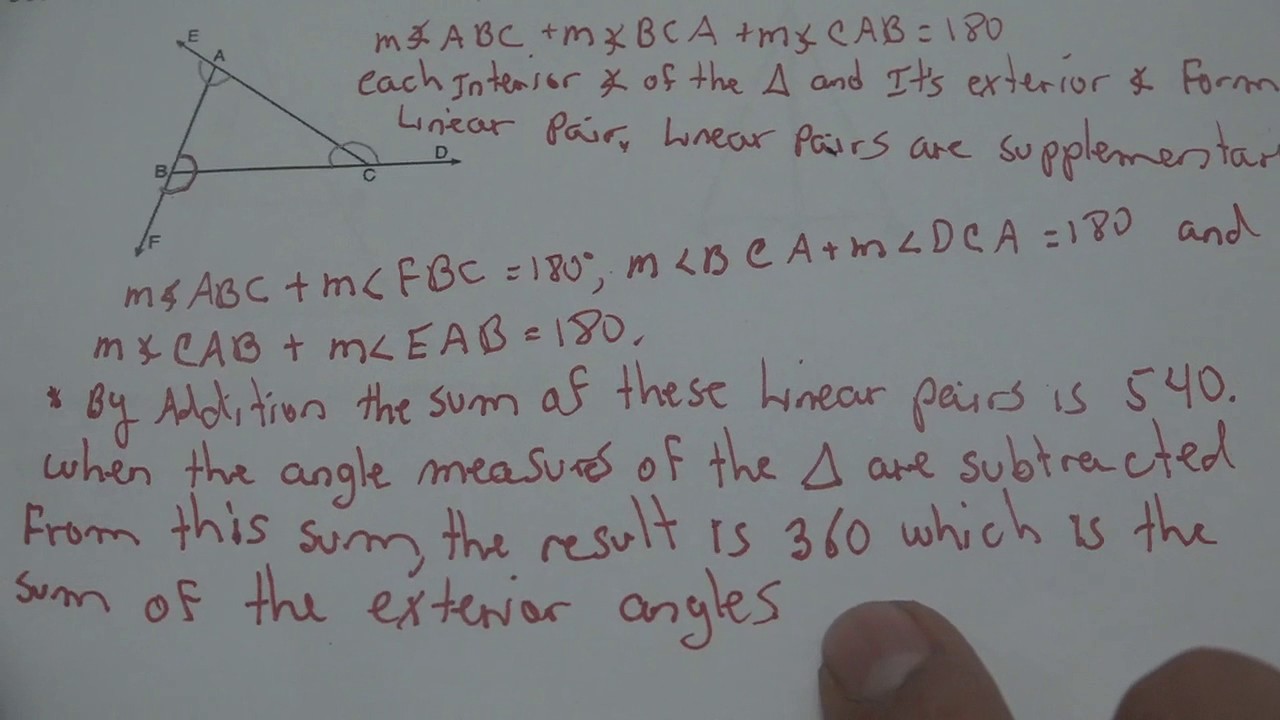 E
A
B
C
D
F
m∡ABC +m∡BCA +m∡CAB=180
each Interior ∡ of the Δ and It's exterior ∡ Form
Linear Pair, Linear Pairs are supplementar
m∡ABC + m<FBC =180°, m<BCA+m<DCA =180 and
m∡CAB + m<EAB=180.
* By Addition the sum of these Linear pairs is 540.
when the angle measures of the Δ are subtracted
From this sum, the result is 360 which is the
sum of the exterior angles